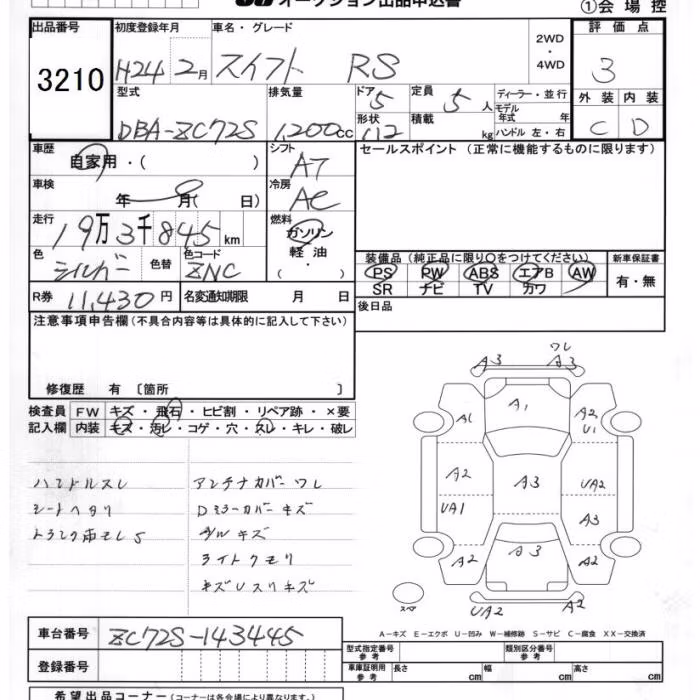 オークション出品申込書
①会場控
出品番号 初度登録年月 車名・グレード 評価点
3210 H24 2月 スイフト RS 2WD・4WD 3
型式 排気量 ドア 定員 ディーラー・並行 外装 内装
DBA-ZC72S 1200cc 5 5人 モデル年式 年 C D
形状 積載 kg ハンドル 左・右
車歴 シフト セールスポイント (正常に機能するものに限ります)
自家用・( ) AT
車検 冷房
年 月( 日) AC
走行 燃料
19万3千845km ガソリン
軽油
・( )
色 色替 色コード 装備品 (純正品に限り○をつけてください) 新車保証書
シルバー ZNC PS PW ABS エアB AW 有・無
SR ナビ TV カワ
R券 11,430円 名変通知期限 月 日 後日品
注意事項申告欄 (不具合内容等は具体的に記入して下さい)
修復歴 有 〔箇所 〕
検査員 FW キズ・飛石・ヒビ割・リペア跡・×要
記入欄 内装 キズ・汚レ・コゲ・穴・スレ・キレ・破レ
ハンドルスレ アンテナカバーワレ
シートヘタリ Dミラーカバーキズ
A/Wキズ
ライトクモリ
キズUスリキズ
ワレ
A3 A3
A1
A1 A2
U1
A2 A3 UA2
UA1 A3
A2 A3 A2
スペア UA2 A2
A−キズ E−エクボ U−凹み W−補修跡 S−サビ C−腐食 XX−交換済
車台番号 ZC72S-143445
型式指定番号 参考 類別区分番号 参考
登録番号 車庫証明用 参考 長さ cm 幅 cm 高さ cm
希望出品コーナー (コーナーは各会場により異なります。)